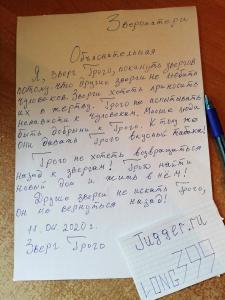 Зверолатери
Объяснительная
Я, зверг Грого, покинуть звергов
потому что другие зверги не любить
чуловеков. Зверги хотеть приносить
их в жертву. Грого не испытывать
ненависти к чуловекам. Милые люди
быть добрыми к Грого. К тому же
они давать Грого вкусный
Грого не хотеть возвращаться
назад к звергам! Грого найти
новый дом и жить в нём!
Другие зверги не искать Грого,
он не вернуться назад!
11.04.2020 г.
Зверг Грого
Jugger.ru
LONG399